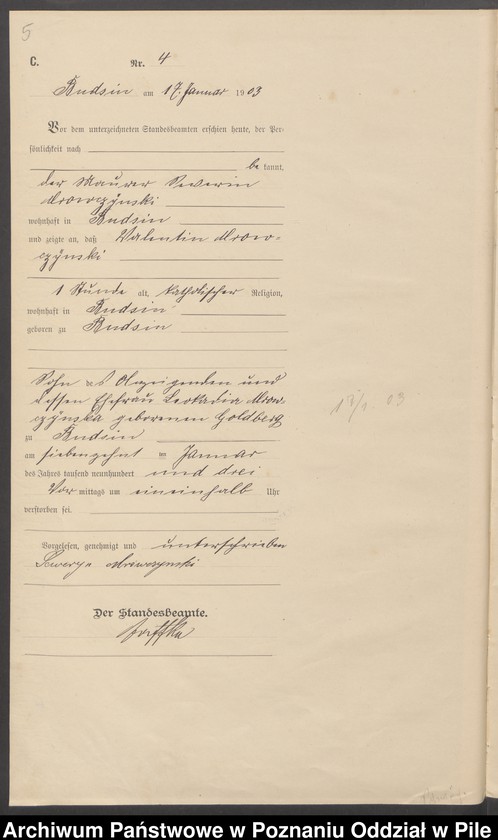 5
C.
Nr. 4
Budsin am 17. Januar 1903
Vor dem unterzeichneten Standesbeamten erschien heute, der Per-
sönlichkeit nach
bekannt,
der Maurer Severin
Mrowczynski
wohnhaft in Budsin
und zeigte an, daß Valentin Mrow-
czynski
1 Stunde alt, katholischer Religion,
wohnhaft in Budsin
geboren zu Budsin
Sohn des Anzeigenden und
dessen Ehefrau Leokadia Mrow-
czynska geborenen Goldberg
zu Budsin
am siebenzehnt en Januar
des Jahres tausend neunhundert und drei
Vor mittags um eineinhalb Uhr
verstorben sei.
17/1 03
Vorgelesen, genehmigt und unterschrieben
Seweryn Mrowczynski
Der Standesbeamte.
Archiwum Państwowe w Poznaniu Oddział w Pile